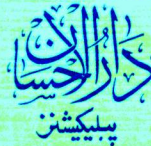 دَارُالاِحسَان
پبلیکیشنز